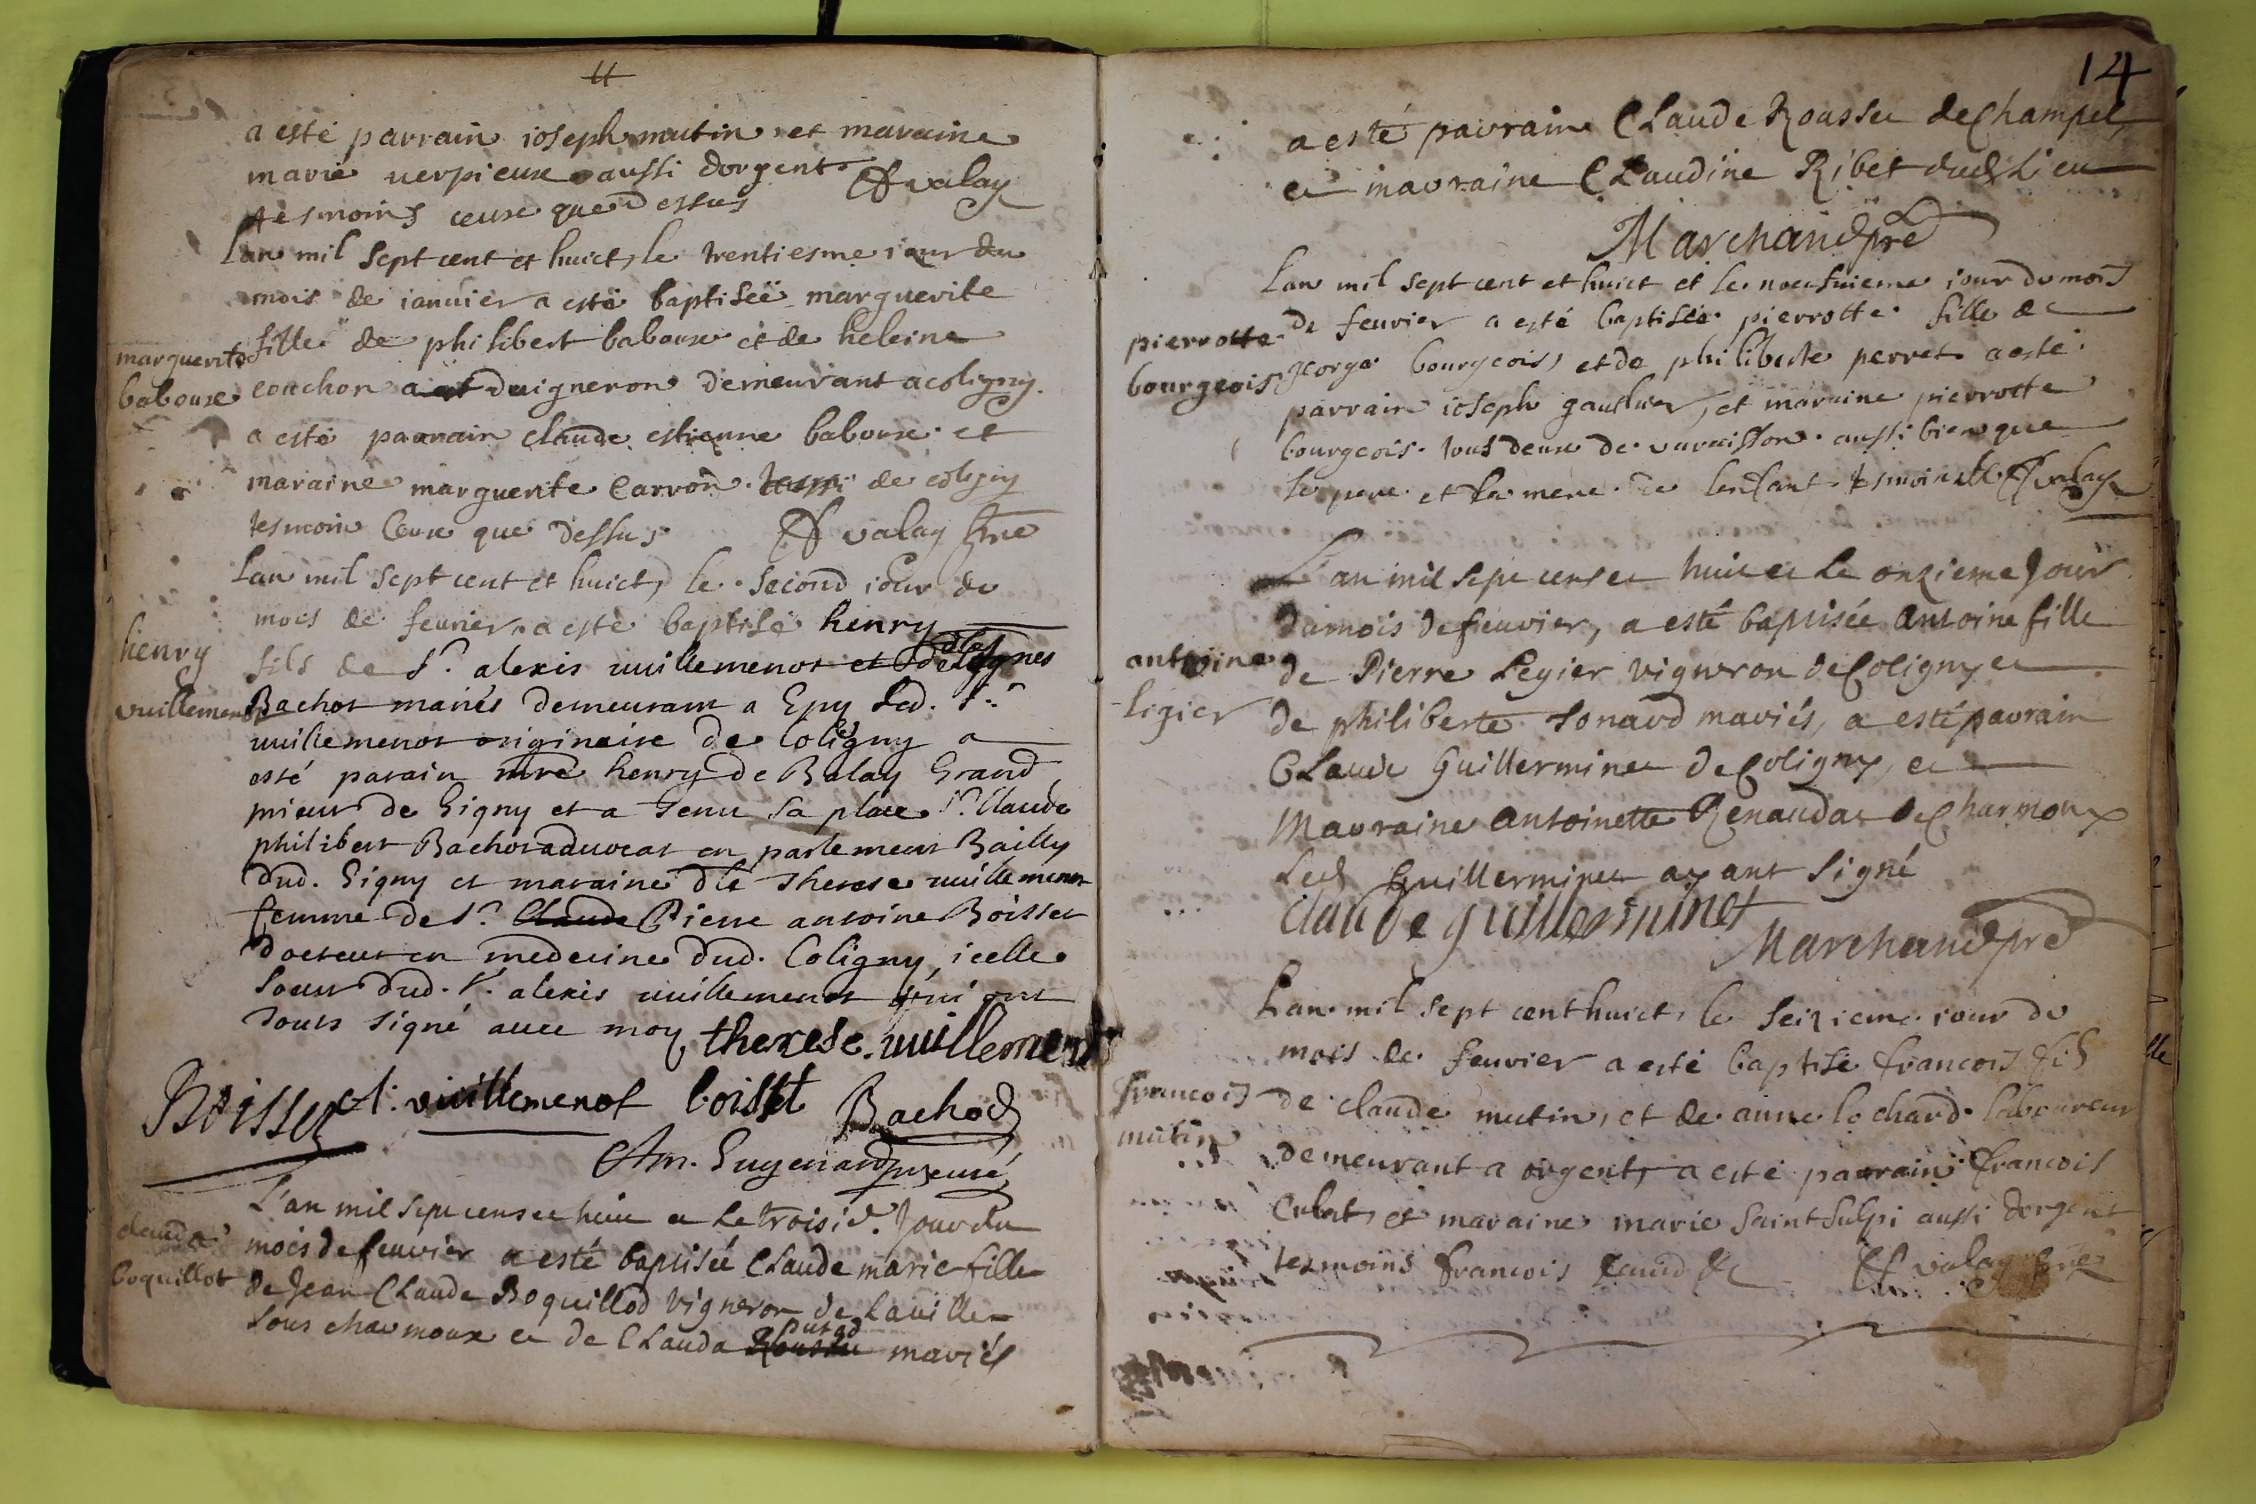 a esté parrain ioseph mutin et maraine
marie verpieux aussi dorgent
tesmoins ceux que dessus Cf valay
Lan mil sept cent et huict, le trentiesme iour du
mois de ianuier a esté baptiseë marguerite
fille de philibert baboux et de heleine
marguerite
baboux
couchon duigneron demeurant a coligny.
a esté parrain claude estienne baboux et
maraine marguerite Carron de coligny
tesmoin Ceux que dessus Cf valay pre
Lan mil sept cent et huict, le second iour du
mois de feurier a esté baptisé henry
henry
vuillemenot
fils de Sr. alexis vuillemenot et de dlle agnes
Bachot mariés demeurant a Epy led. Sr.
vuillemenot originaire de Coligny a
esté parain mre henry de Balay Grand
prieur de Gigny et a tenu sa place Sr. Claude
philibert Bachot aduocat en parlement Bailly
dud. Gigny et maraine dlle Therese vuillemenot
femme de Sr. Claude Pierre antoine Boisset
docteur en medecine dud. Coligny, icelle
soeur dud. Sr. alexis vuillemenot qui ont
tous signé auec moy therese. vuillemenot
Boisset A. vuillemenot boisset Bachod
Am. Guyenard curé
L'an mil sept cens et huit et le troisie. Jour du
clauda
boquillot
mois de feuvier a esté baptisée Claude marie fille
de Jean Claude Boquillod Vigneron de Lauille
sous charmoux et de Clauda mariés
14
a esté pavrain Claude Rousset de Champel,
et mavraine Claudine Ribet dud Lieu
Marchand pre
Lan mil sept cent et huict et le neufuieme iour du mois
de feuvier a esté baptisée pierrotte fille de
pierrotte
bourgeois
george bourgeois, et de philiberte perret a esté
parrain ioseph gauthier, et maraine pierrotte
bourgeois tous deux de varaisson aussi bien que
le pere et la mere de lenfant Cf valay
L'an mil sept cens et huit et le onzieme Jour
du mois de feuvier, a esté baptisée Antoine fille
antoine
ligier
de Pierre Legier vigneron de Coligny et
de philiberte Tonard mariés, a esté pavrain
Claude Guillerminet de Coligny, et
Mavraine Antoinette Renaudat de Charmoux
Led Guillerminet ayant signé
claude guillerminet
Marchand pre
Lan mil sept cent huict, le seizieme iour du
mois de feuvier a esté baptisé francois fils
francois
mutin
de claude mutin, et de anne lochard laboureur
demeurant a orgent, a esté parrain francois
Culat, et maraine marie Saint Sulpi aussi dorgent
tesmoins francois Cf valay pre